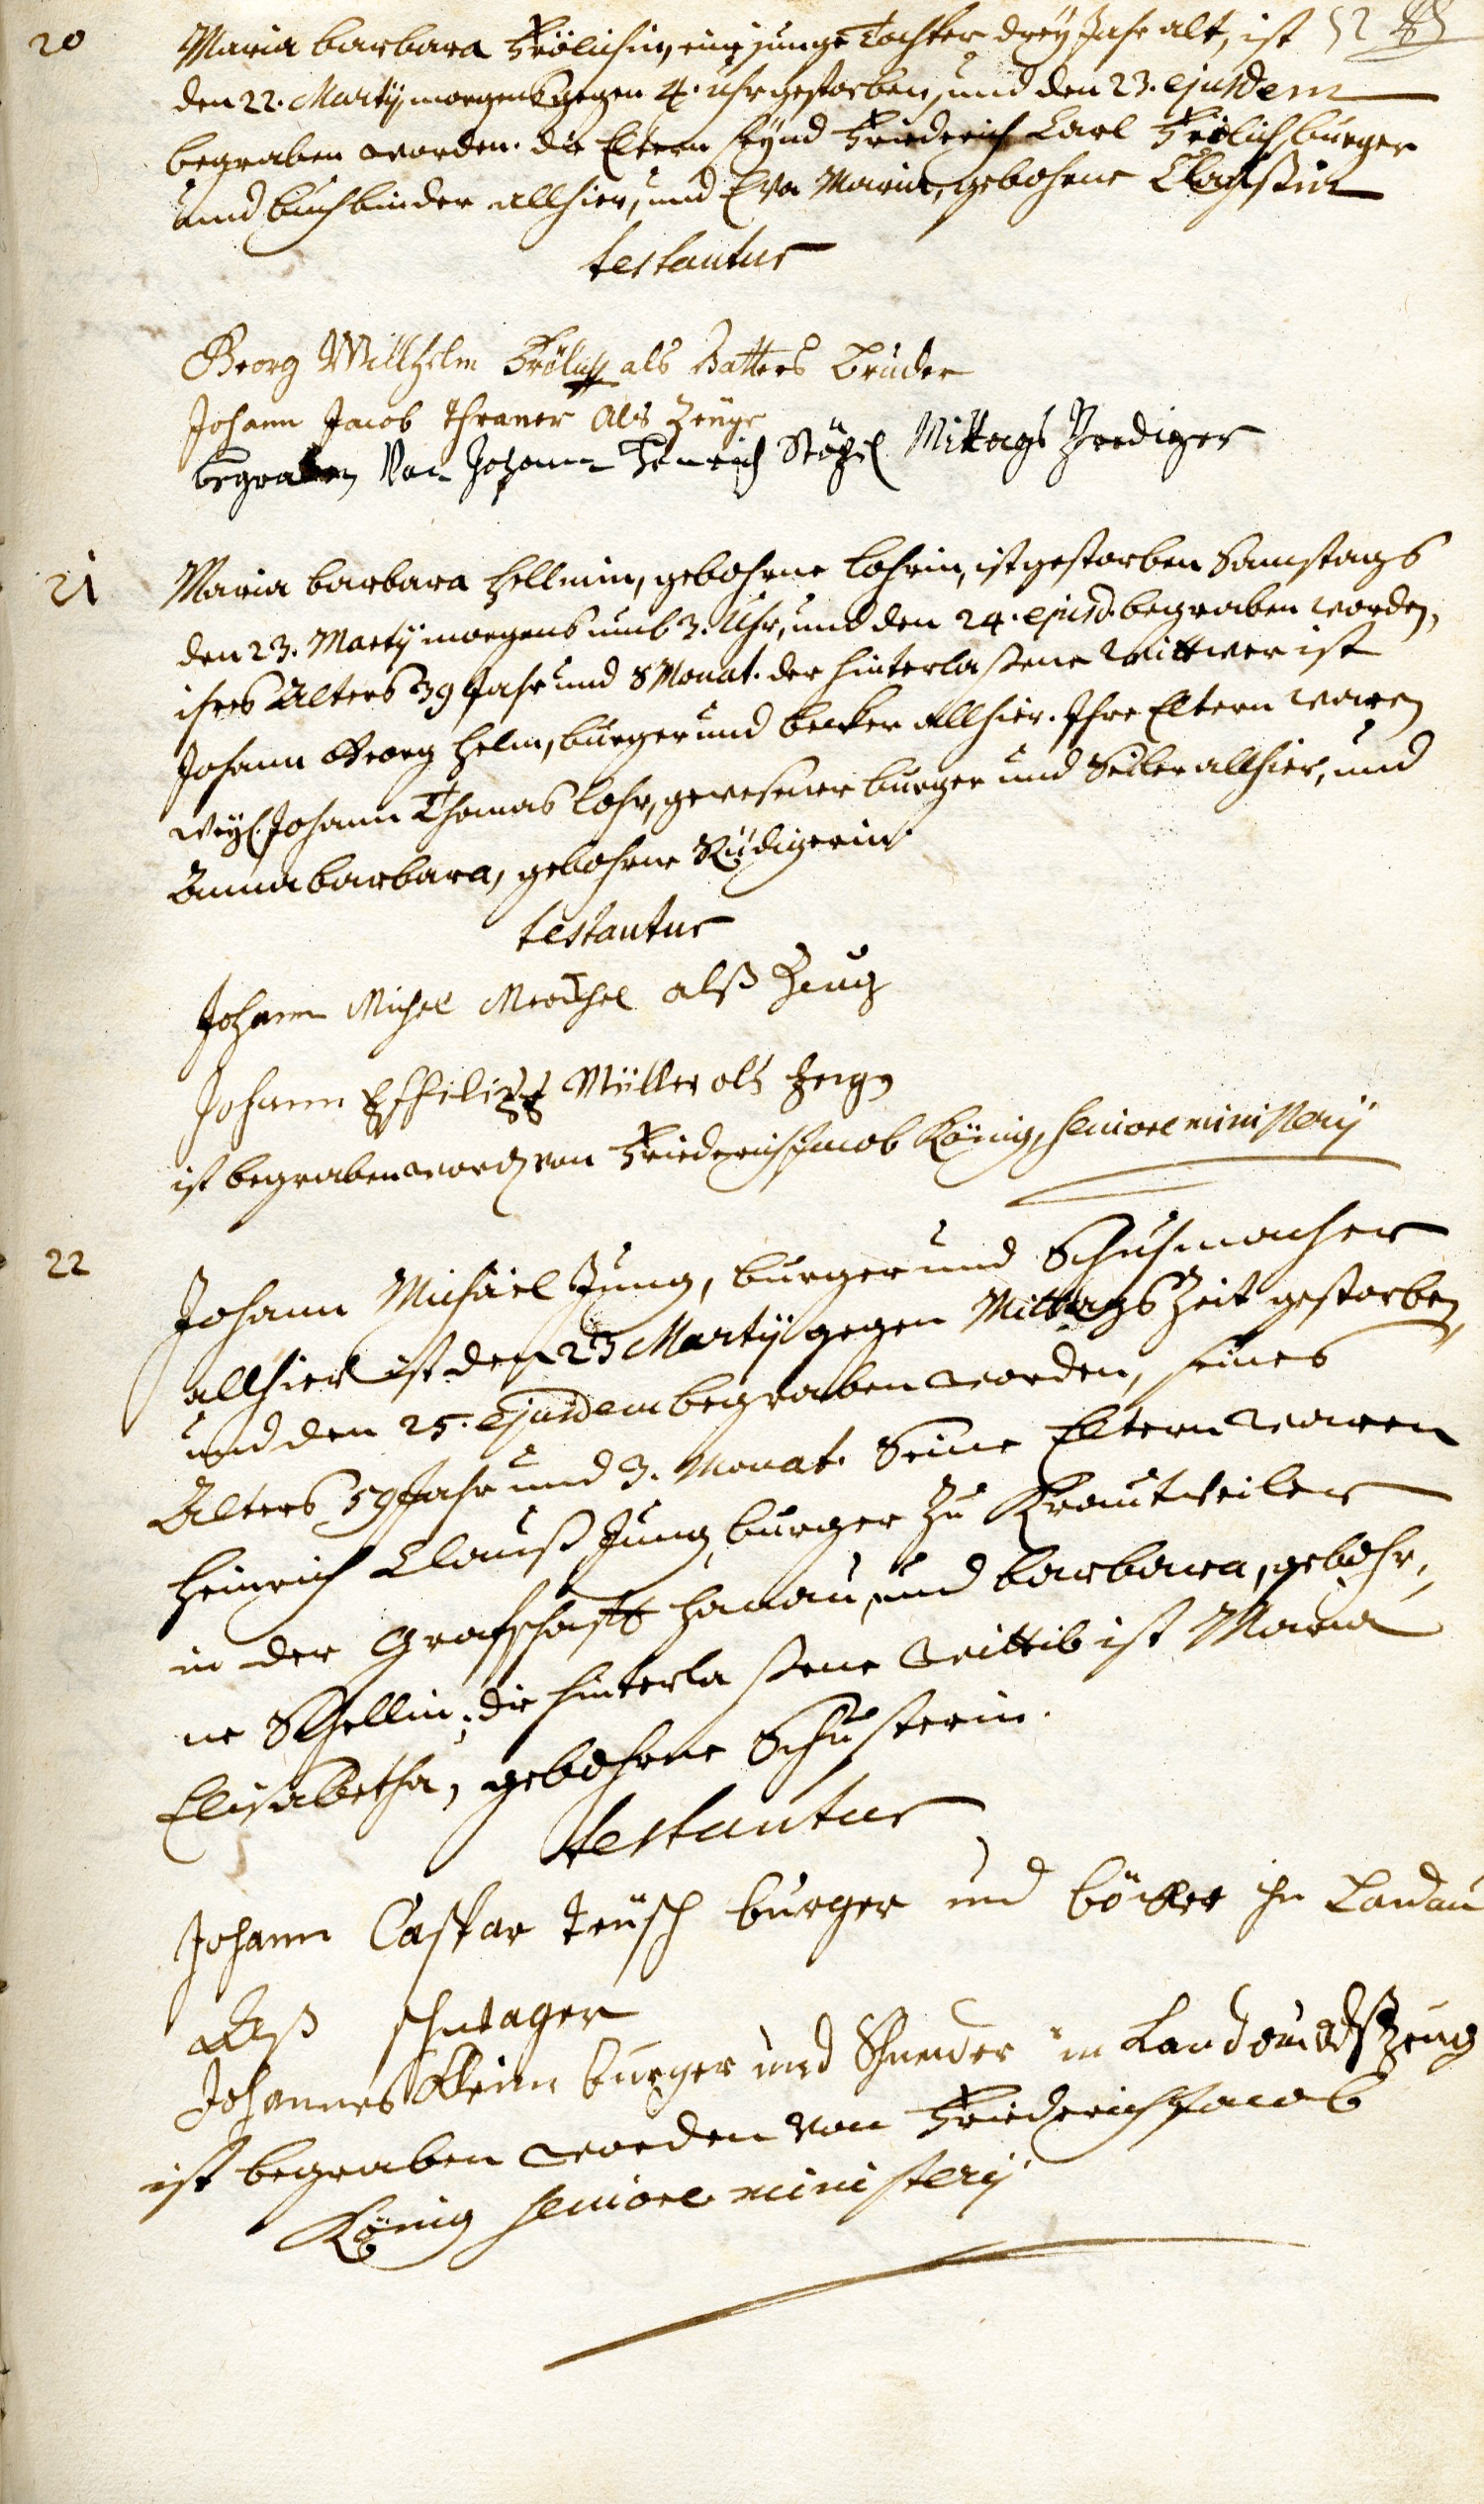 52
20 Maria Barbara Frölichin, eine junge Tochter drey Jahr alt, ist
den 22. Martij morgens gegen 4. uhr gestorben, und den 23. ejusdem
begraben worden. die Eltern seynd Friederich Carl Frölich, burger
und buchbinder allhier, und Eva Maria, gebohrne
testantur
Georg Willhelm Frölich als Vatters Bruder
Johann Jacob Thraner als Zeuge
begraben Von Johann Henrich Mittags Prediger
21 Maria Barbara Hellmin, gebohrne Lohrin, ist gestorben Samstags
den 23. Martij morgens umb 3. Uhr, und den 24. ejusd. begraben worden,
ihres Alters 39 Jahr und 8 Monat. der hinterlaßene Wittwer ist
Johann Georg Helm, burger und becker allhier. Ihre Eltern waren
weyl. Johann Thomas Lohr, gewesener burger und Seiler allhier, und
Anna Barbara, gebohrne Rüdigerin.
testantur
Johann Michel alß Zeug
Johann Müller als Zeige
ist begraben word von Friederich Jacob König, seniore ministerij
22 Johann Michäel Jung, burger und Schuhmacher
allhier ist den 23 Martij gegen Mittags Zeit gestorben,
und den 25. ejusdem begraben worden, seines
Alters 59 Jahr und 3. Monat. Seine Eltern waren
Heinrich Clauß Jung, burger zu Krautweiler
in der Grafschafft Hanau, und Barbara, gebohr,
ne die hinterlaßene Wittib ist Maria
Elisabetha, gebohrne Schusterin.
testantur
Johann Caspar Teusch burger und böcker in Landau
alß schwager
Johannes Klein burger und Schneider in Landau alß Zeug
ist begraben worden von Friederich Jacob
König seniore ministerij